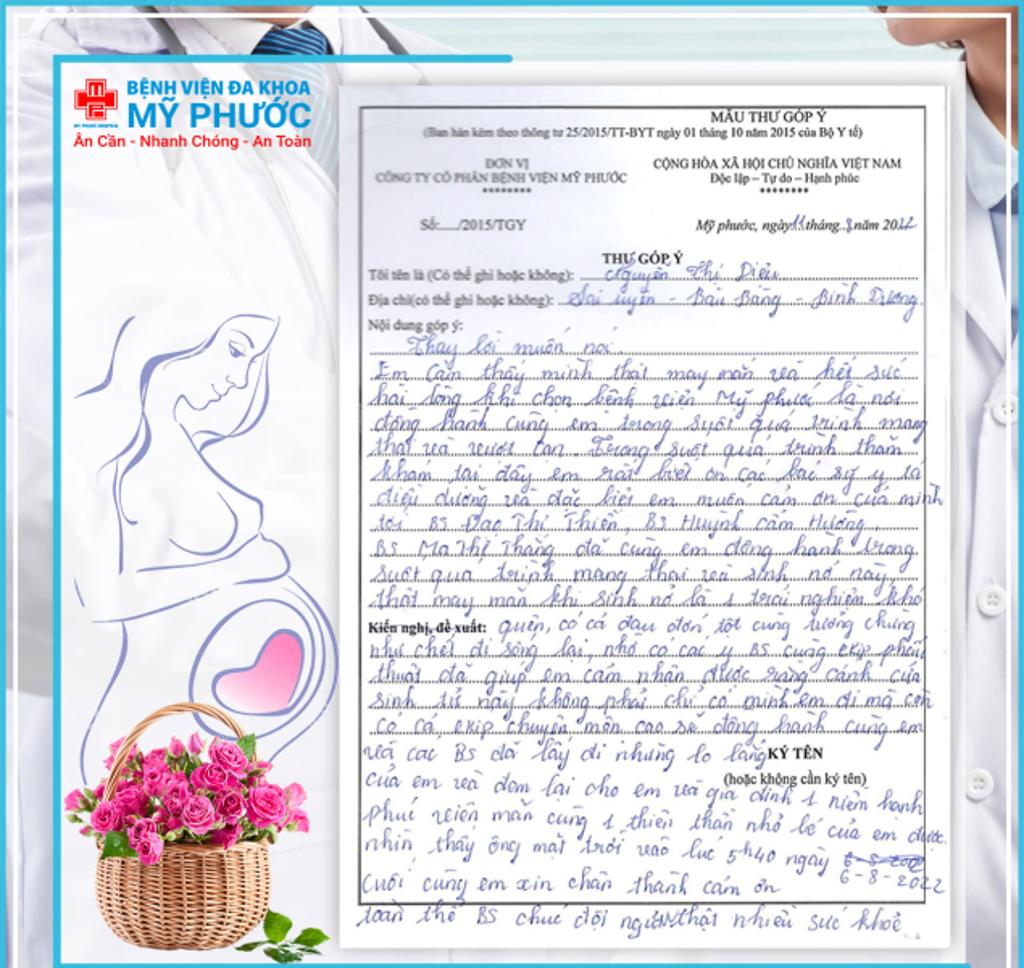 BỆNH VIỆN ĐA KHOA
MỸ PHƯỚC
MY PHUOC HOSPITAL
Ân Cần - Nhanh Chóng - An Toàn
MẪU THƯ GÓP Ý
(Ban hàn kèm theo thông tư 25/2015/TT-BYT ngày 01 tháng 10 năm 2015 của Bộ Y tế)
ĐƠN VỊ
CÔNG TY CỔ PHẦN BỆNH VIỆN MỸ PHƯỚC
********
CỘNG HÒA XÃ HỘI CHỦ NGHĨA VIỆT NAM
Độc lập – Tự do – Hạnh phúc
********
Số:..../2015/TGY
Mỹ phước, ngày 11 tháng 8 năm 2022
THƯ GÓP Ý
Tôi tên là (Có thể ghi hoặc không): Nguyễn Thị Diệu
Địa chỉ(có thể ghi hoặc không): Lai uyên - Bàu Bàng - Bình Dương
Nội dung góp ý:
Thay lời muốn nói.
Em cảm thấy mình thật may mắn và hết sức
hài lòng khi chọn bệnh viện Mỹ phước là nơi
đồng hành cùng em trong suốt quá trình mang
thai và vượt cạn. Trong suốt quá trình thăm
khám tại đây em rất biết ơn các bác sỹ y tá
điều dưỡng và đặc biệt em muốn cảm ơn của mình
tới BS Đào Thị Thiên, BS Huỳnh cẩm Hương,
BS Ma Thế Thăng đã cùng em đồng hành trong
suốt quá trình mang thai và sinh nở này,
thật may mắn khi sinh nở là 1 trải nghiệm khó
Kiến nghị, đề xuất: quên, có cả đau đớn tột cùng tưởng chừng
như chết đi sống lại, nhờ có các y BS cùng ekip phẫu
thuật đã giúp em cảm nhận được rằng cánh cửa
sinh tử này không phải chỉ có mình em đi mà còn
có cả, ekip chuyên môn cao sẽ đồng hành cùng em
và các BS đã lấy đi những lo lắng
KÝ TÊN
(hoặc không cần ký tên)
của em và đem lại cho em và gia đình 1 niềm hạnh
phúc viên mãn cùng 1 thiên thần nhỏ bé của em được
nhìn thấy ông mặt trời vào lúc 5h40 ngày
6-8-2022
Cuối cùng em xin chân thành cảm ơn
toàn thể BS chúc đội ngũ thật nhiều sức khoẻ